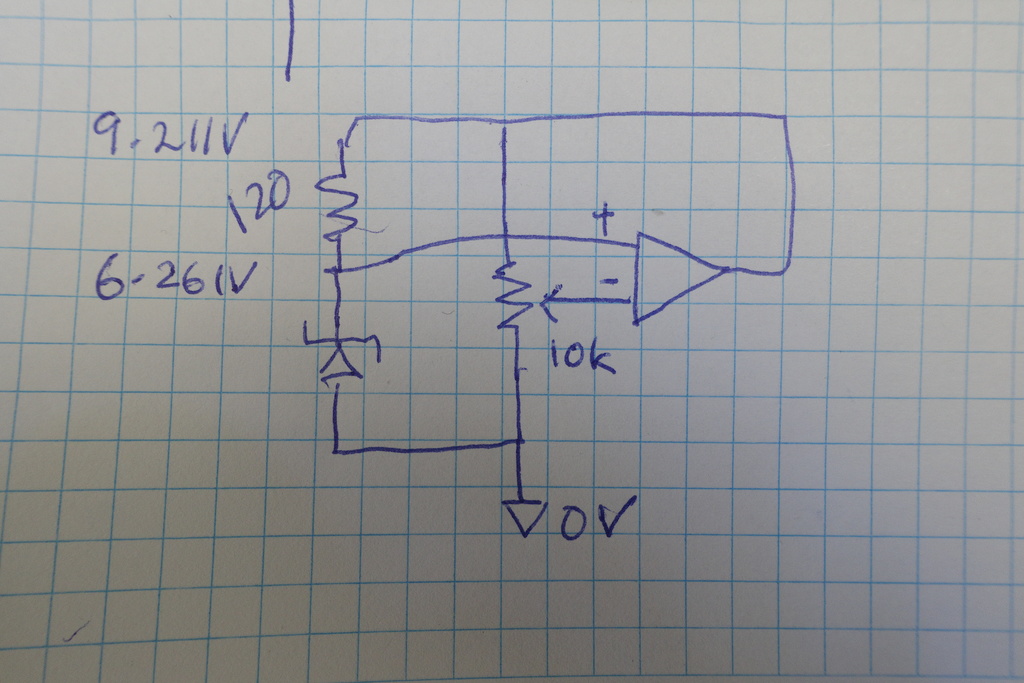 9.211V
120
+
6.261V
-
10k
0V